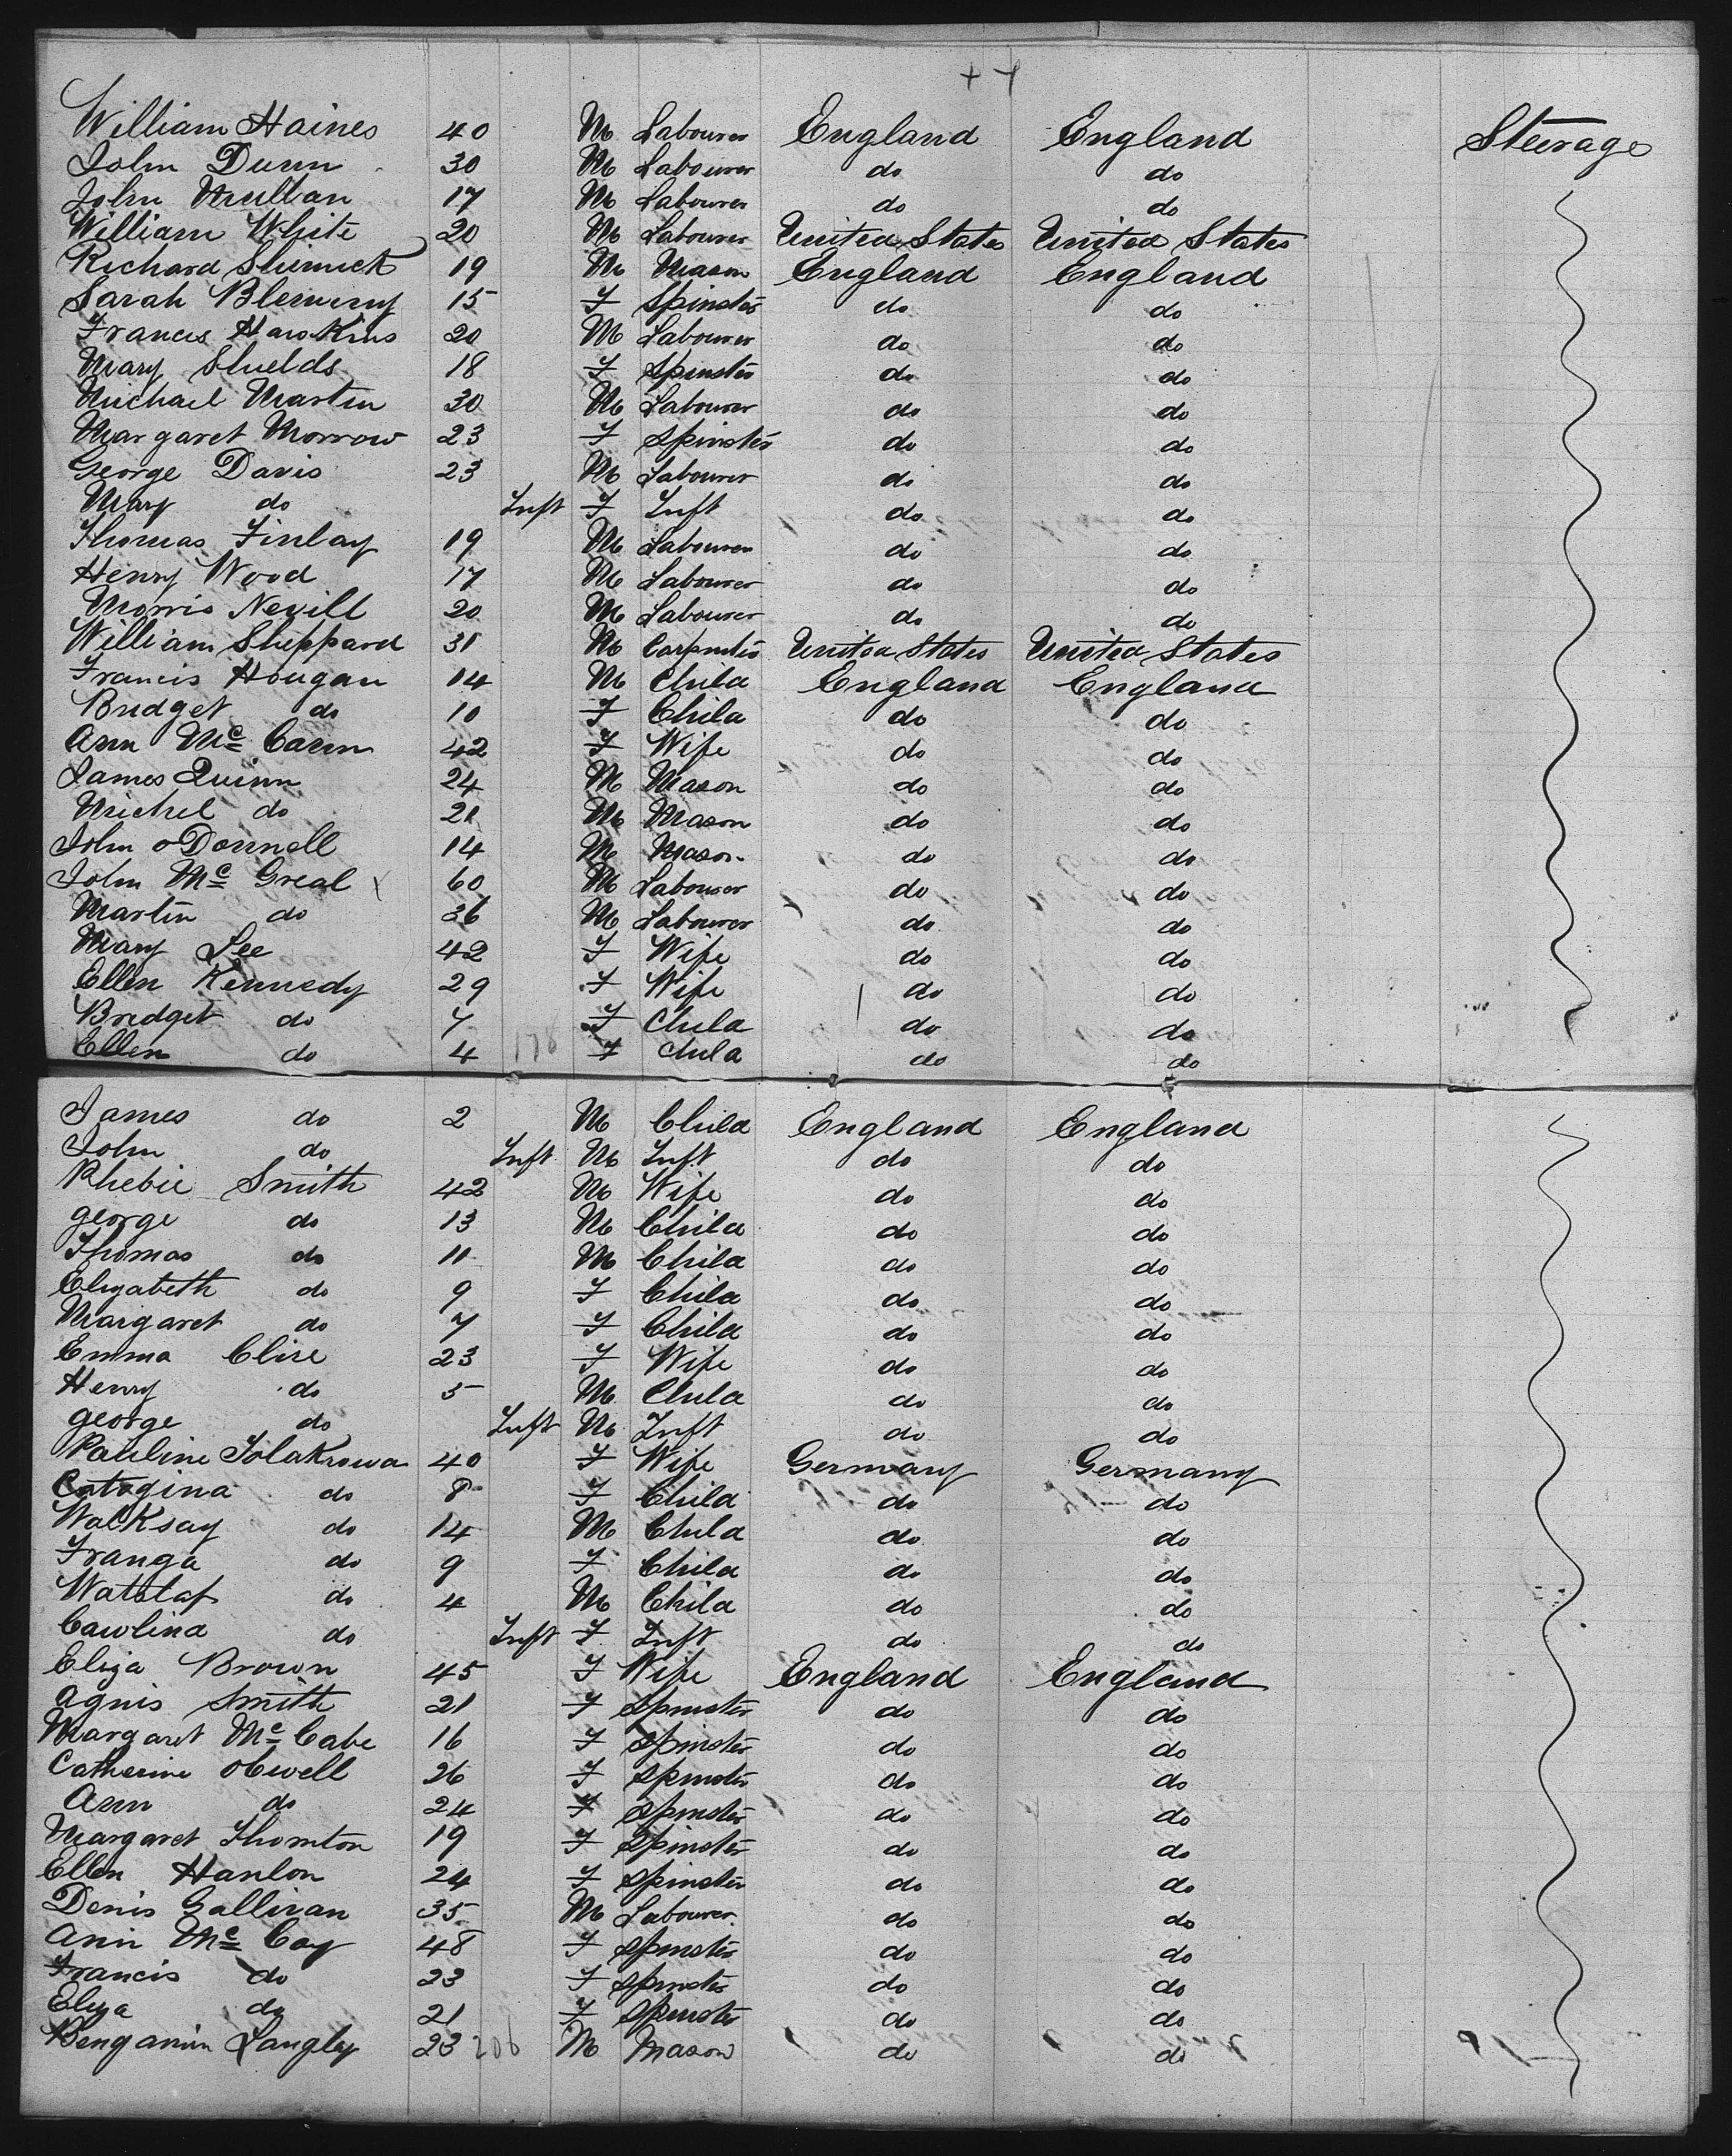 + 4
William Haines 40 M Labourer England England Steerage
John Dunn 30 M Labourer do do
John Mullan 17 M Labourer do do
William White 20 M Labourer United States United States
Richard 19 M Mason England England
Sarah 15 F Spinster do do
Francis Hawkins 20 M Labourer do do
Mary Shields 18 F Spinster do do
Michael Martin 30 M Labourer do do
Margaret Morrow 23 F Spinster do do
George Davis 23 M Labourer do do
Mary do Inft F Inft do do
Thomas Finlay 19 M Labourer do do
Henry Wood 17 M Labourer do do
Morris Nevill 20 M Labourer do do
William Sheppard 31 M Carpenter United States United States
Francis Hougan 14 M Child England England
Bridget do 10 F Child do do
Ann Mc Cann 42 F Wife do do
James Quinn 24 M Mason do do
Michel do 21 M Mason do do
John oDonnell 14 M Mason do do
John Mc Greal x 60 M Labourer do do
Martin do 26 M Labourer do do
Mary Lee 42 F Wife do do
Ellen Kennedy 29 F Wife do do
Bridget do 7 F Child do do
Ellen do 4 178 F Child do do
James do 2 M Child England England
John do Inft M Inft do do
Phebie Smith 42 M Wife do do
george do 13 M Child do do
Thomas do 11 M Child do do
Elizabeth do 9 F Child do do
Margaret do 7 F Child do do
Emma Clire 23 F Wife do do
Henry do 5 M Child do do
george do Inft M Inft do do
Pauline 40 F Wife Germany Germany
Catagina do 8 F Child do do
Walksay do 14 M Child do do
Franga do 9 F Child do do
Watslaf do 4 M Child do do
Cawlina do Inft F Inft do do
Eliza Brown 45 F Wife England England
Agnis Smith 21 F Spinster do do
Margaret Mc Cabe 16 F Spinster do do
Catherine 26 F Spinster do do
Ann do 24 F Spinster do do
Margaret Thornton 19 F Spinster do do
Ellen Hanlon 24 F Spinster do do
Denis Gallivan 35 M Labourer do do
Ann Mc Coy 48 F Spinster do do
Francis do 23 F Spinster do do
Eliza do 21 F Spinster do do
Bengamin Langley 23 206 M Mason do do